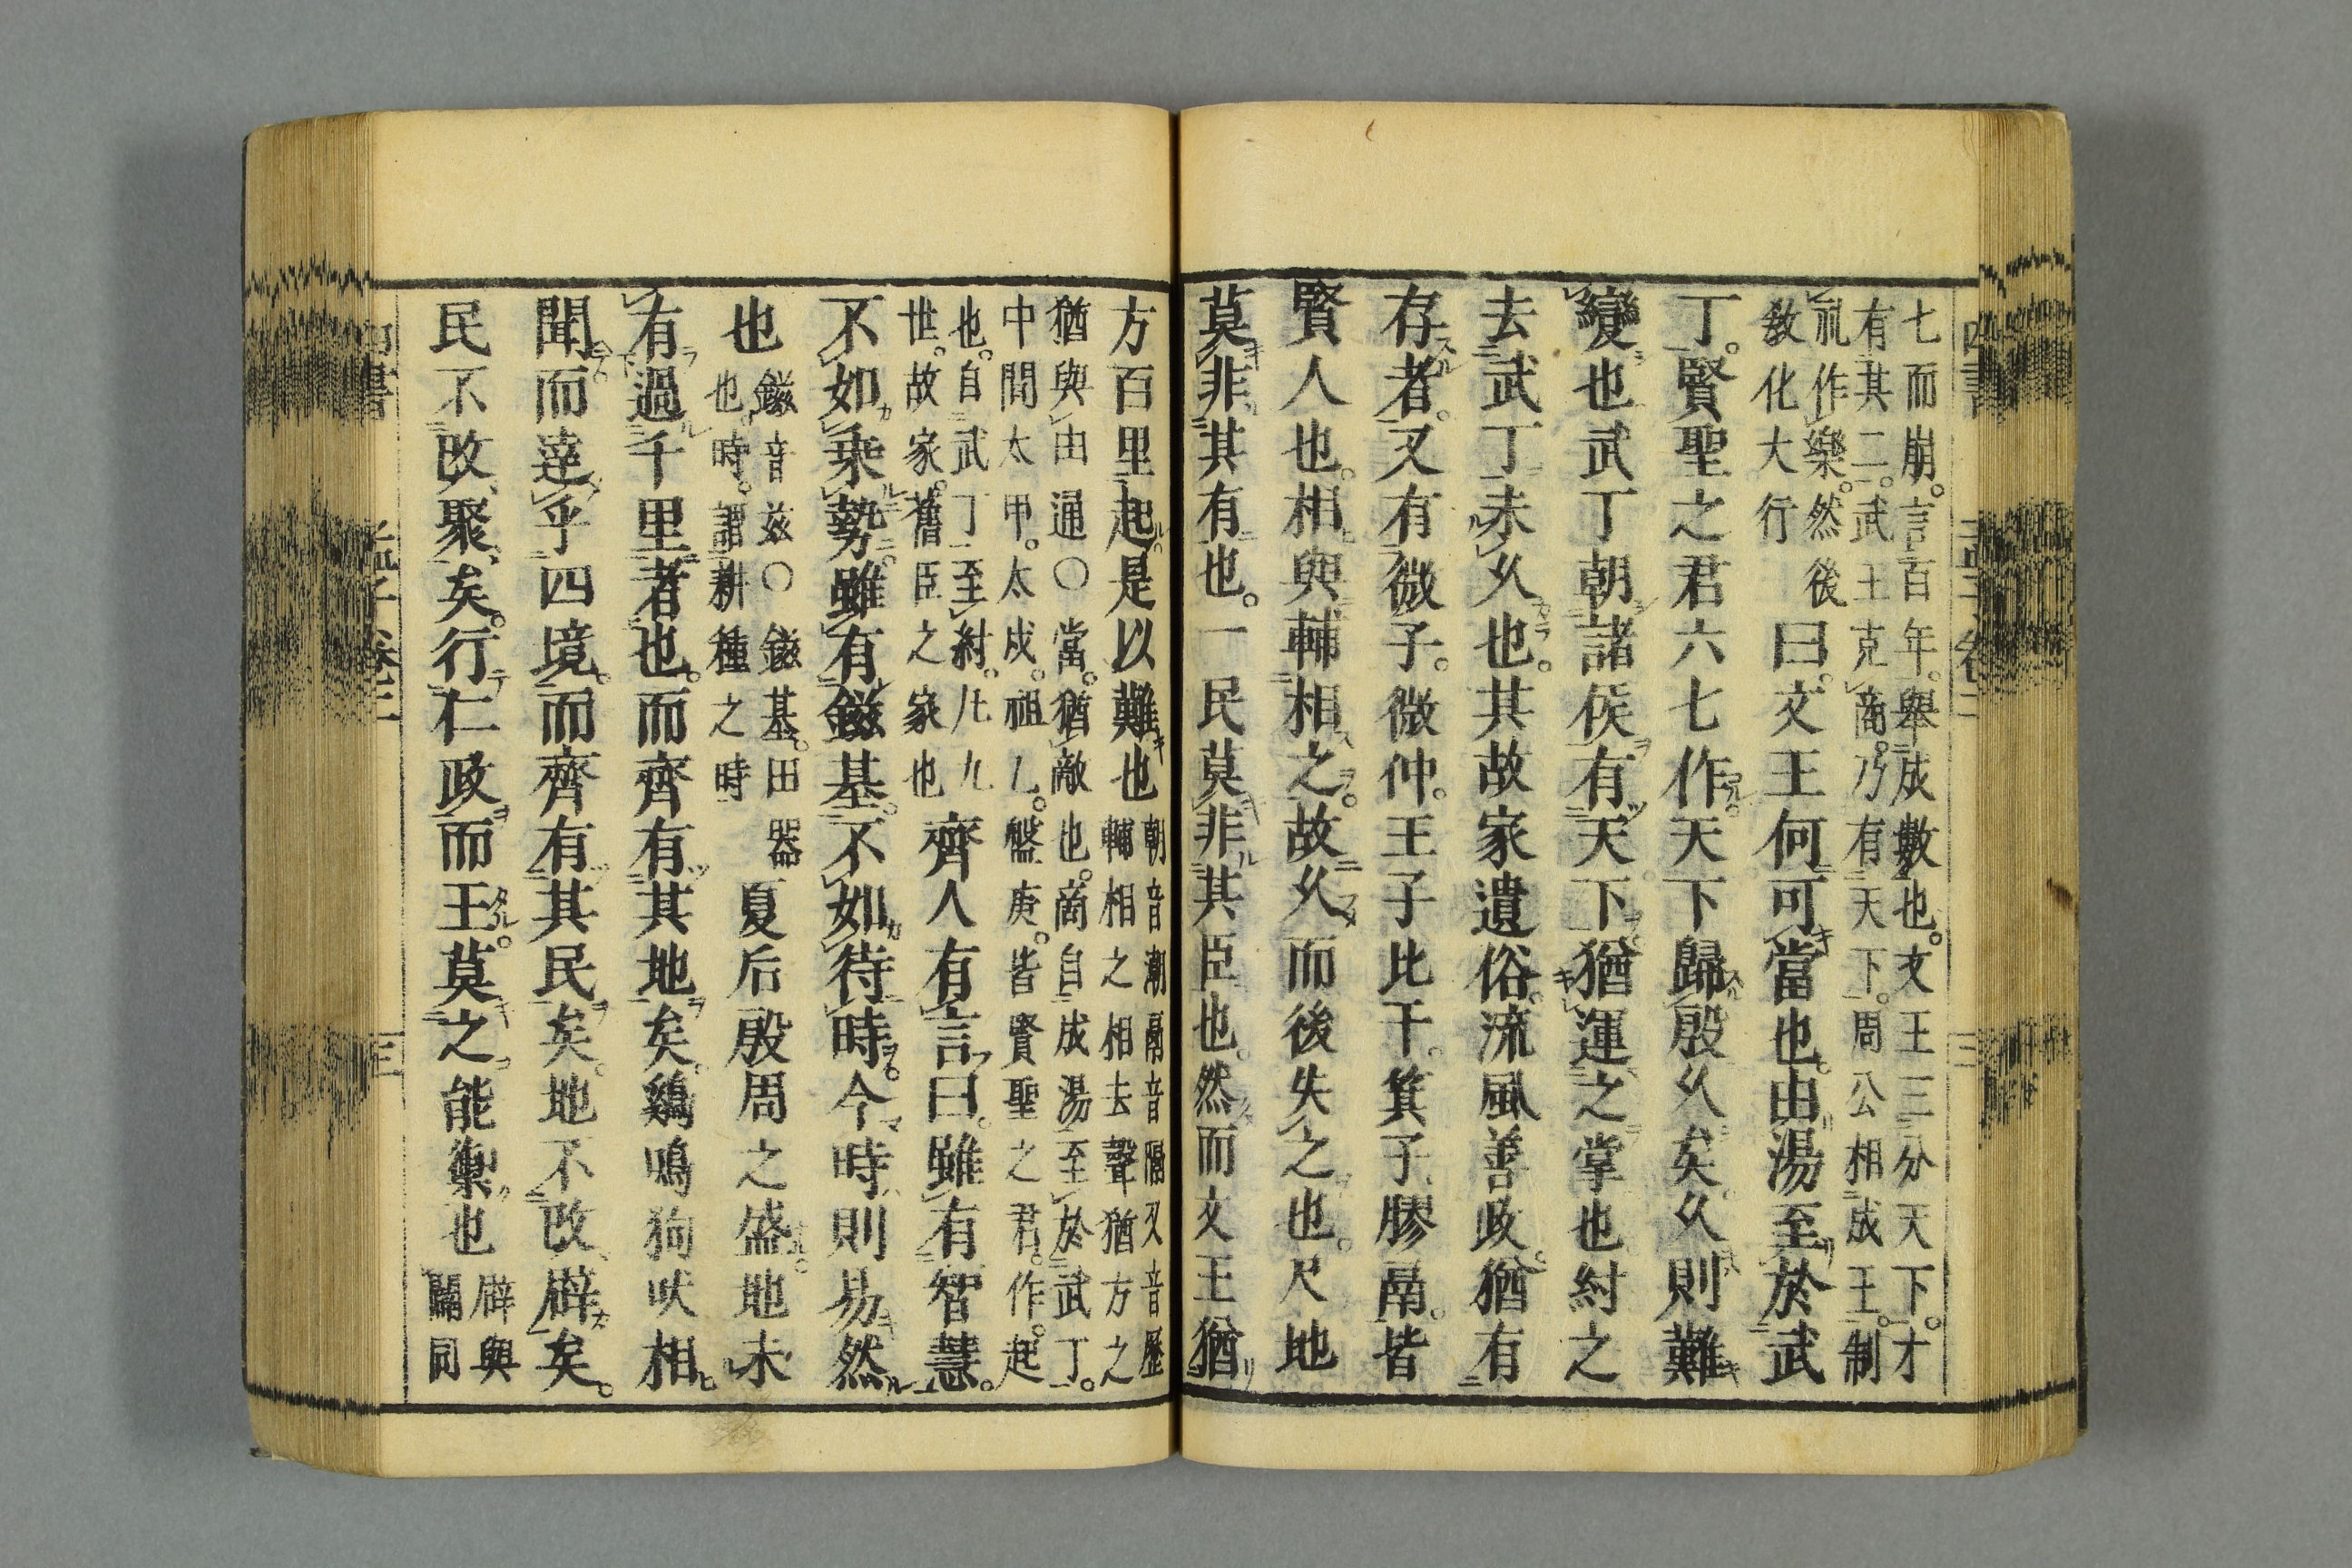 七而崩。言百年。舉成數也。文王三分天下。才
有其二。武王克商。乃有天下。周公相成王。制
礼作樂。然後
敎化大行
曰。文王何可當也。由湯至於武
丁。賢聖之君六七作。天下歸殷久矣。久則難
變也武丁朝諸侯有天下猶運之掌也紂之
去武丁未久也。其故家遺俗。流風善政。猶有
存者。又有微子。微仲。王子比干。箕子膠鬲。皆
賢人也。相與輔相之。故久而後失之也。尺地
莫非其有也。一民莫非其臣也。然而文王猶
方百里起。是以難也
朝音潮鬲音隔又音歷
輔相之相去聲猶方之
猶與由通〇當。猶敵也。商自成湯至於武丁。
中間太甲。太戊。祖乙。盤庚。皆賢聖之君。作。起
也。自武丁至紂。凡九
世。故家。舊臣之家也
齊人有言曰。雖有智慧。
不如乘勢。雖有鎡基。不如待時。今時則易然
也
鎡音玆〇鎡基。田器
也。時。謂耕種之時
夏后殷周之盛。地未
有過千里者也。而齊有其地矣。鷄鳴狗吠相
聞。而達乎四境。而齊有其民矣。地不改辟矣。
民不改聚矣。行仁政而王。莫之能禦也
辟與
闢同
四書
孟子卷二
三